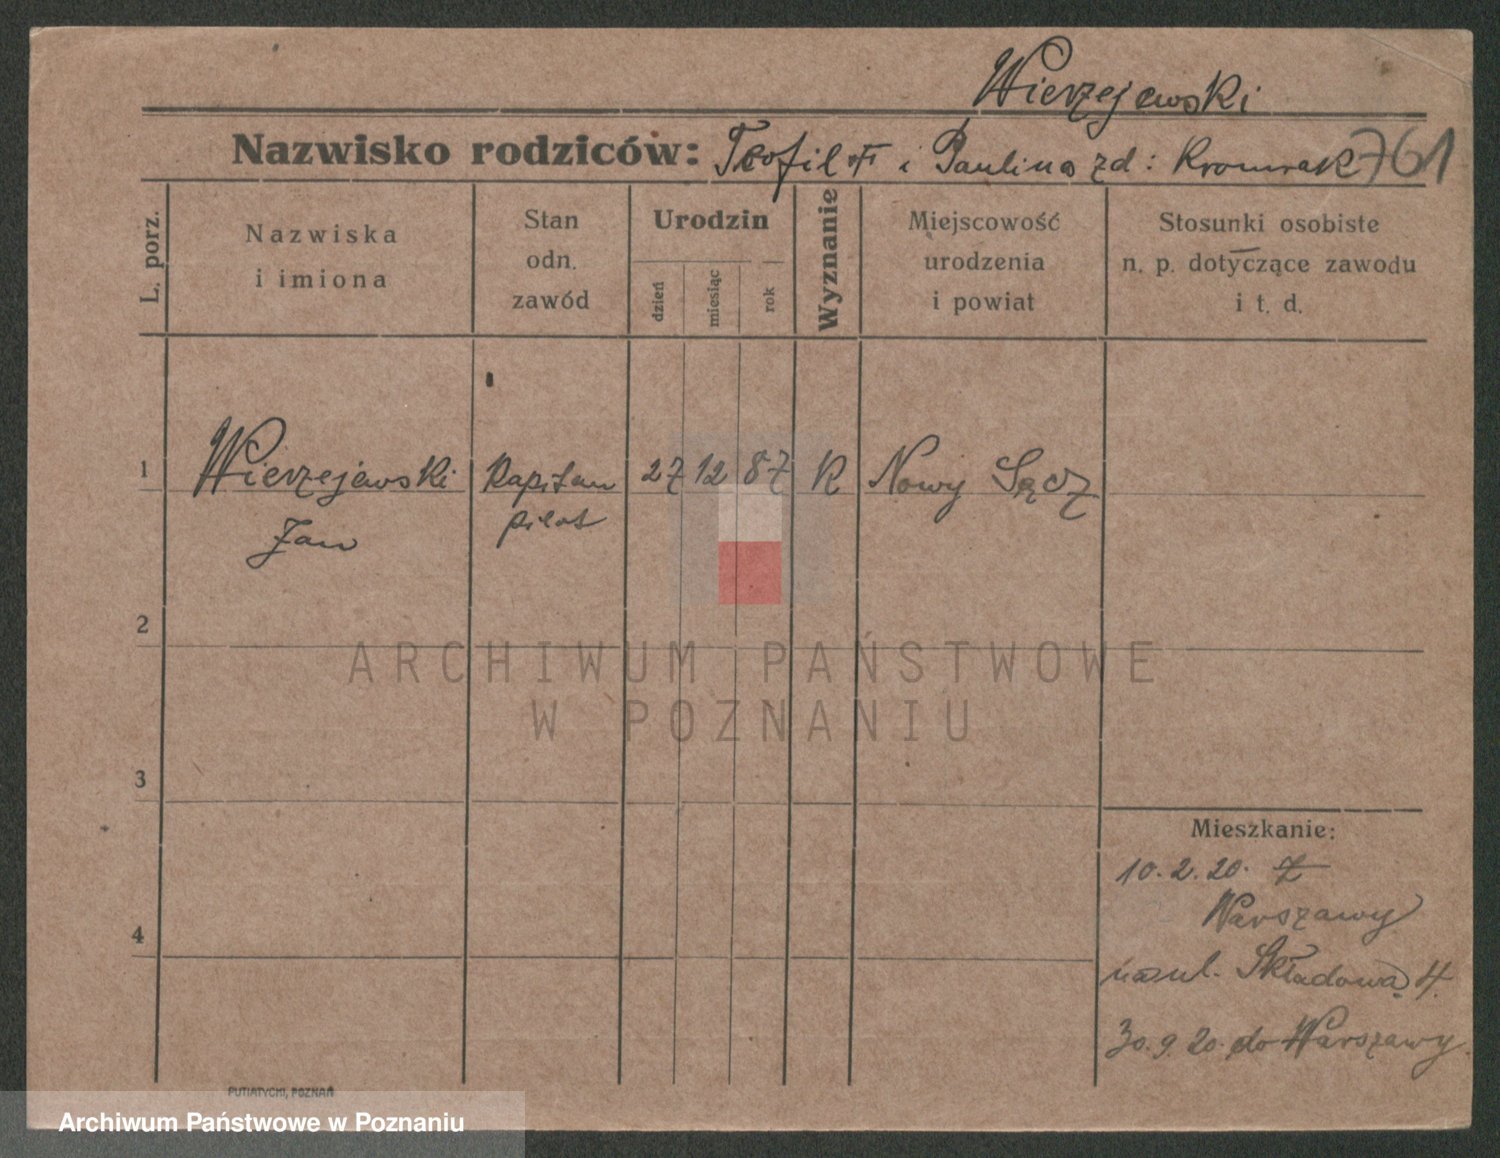 Wierzejewski
Nazwisko rodziców: Teofil i Paulina zd: 761
L. porz.
Nazwiska
i imiona
Stan
odn.
zawód
Urodzin
dzień
miesiąc
rok
Wyznanie
Miejscowość
urodzenia
i powiat
Stosunki osobiste
n. p. dotyczące zawodu
i t. d.
1 Wierzejewski Kapitan 27 12 87 K Nowy Sącz
Jan pilot
2
ARCHIWUM PAŃSTWOWE
W POZNANIU
3
Mieszkanie:
10.2.20. z
Warszawy
4
na ul. Składową 4.
30.9.20. do Warszawy
PUTIATYCKI, POZNAŃ
Archiwum Państwowe w Poznaniu